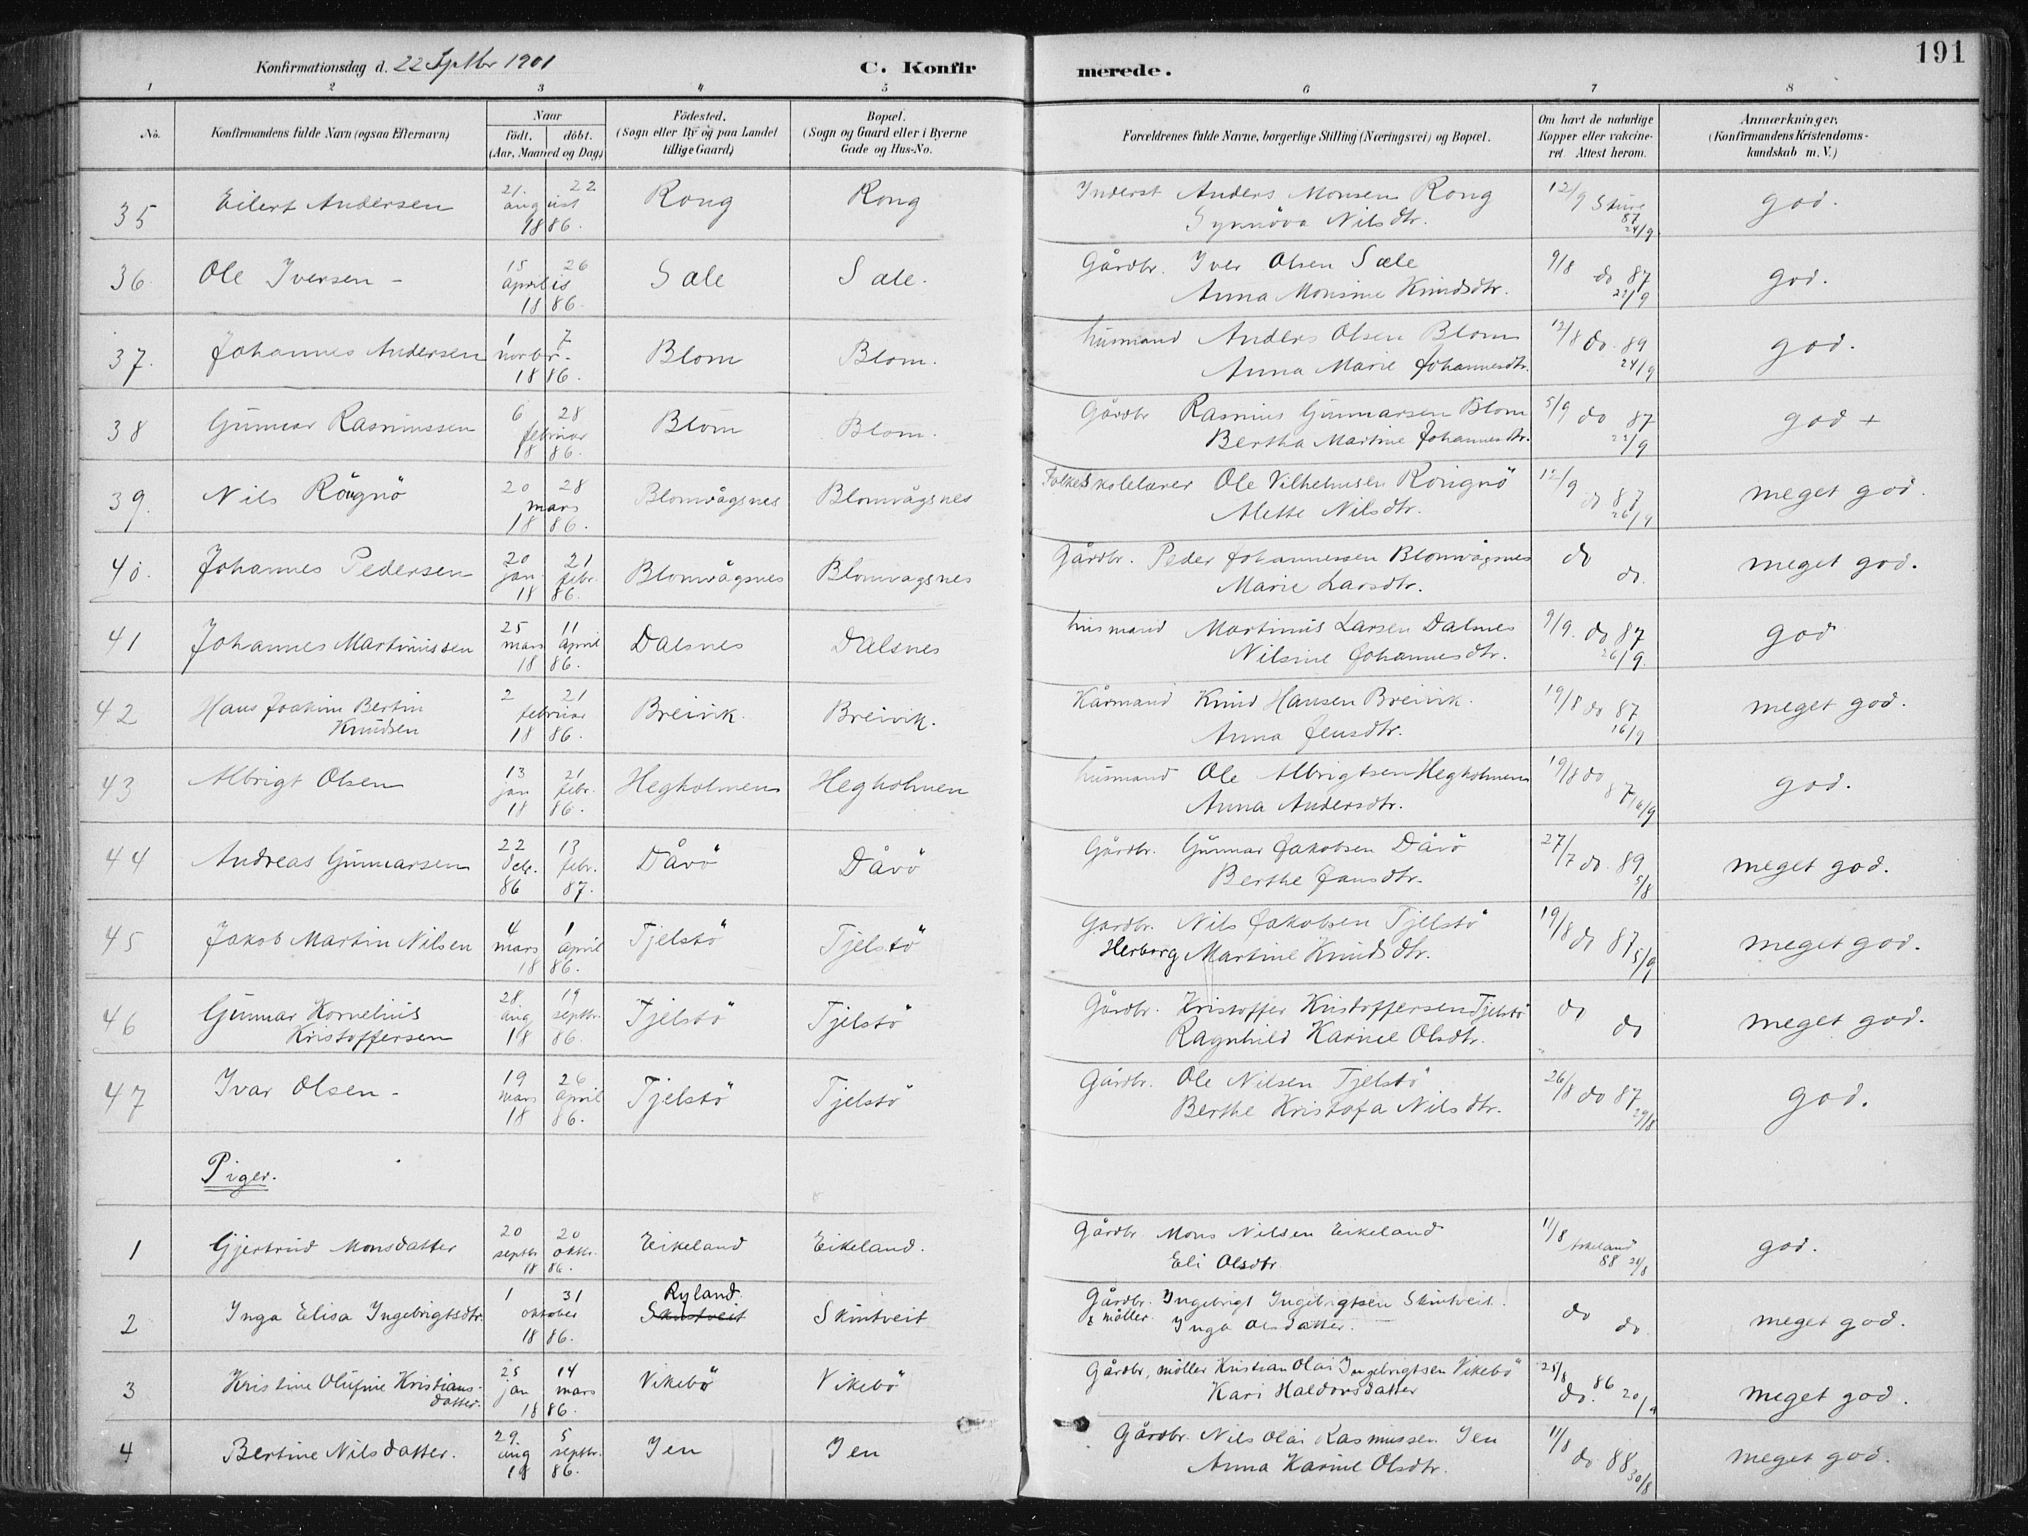 191
Konfirmationsdag d. 22 Septbr 1901 C. Konfirmerede.
1 2 3 4 5 6 7 8
No. Konfirmandens fulde Navn (ogsaa Efternavn) Naar født. døbt. (Aar, Maaned og Dag) Fødested. (Sogn eller By og paa Landet tillige Gaard) Bopæl. (Sogn og Gaard eller i Byerne Gade og Hus-No. Forældrenes fulde Navne, borgerlige Stilling (Næringsvei) og Bopæl. Om havt de naturlige Kopper eller vakcineret. Attest herom. Anmærkninger. (Konfirmandens Kristendomskundskab m. V.)
35 Eilert Andersen 21. 22 august 1886. Rong Rong Inderst Anders Monsen Rong 12/9 Sture 87 24/9 god.
Synnöva Nilsdtr.
36 Ole Iversen - 15 26 aprilis 1886. Sæle Sæle. Gårdbr. Iver Olsen Sæle 9/8 do 87 22/9 god.
Anna Monsine Knudsdtr.
37. Johannes Andersen 1 7 novbr. 1886. Blom Blom. husmand Anders Olsen Blom 12/8 do. 89 24/9 god.
Anna Marie Johannesdtr.
38 Gunnar Rasmussen 6 28 februar 1886. Blom Blom. Gårdbr Rasmus Gunnarsen Blom 5/9 do 87 22/9 god +
Bertha Martine Johannesdtr.
39. Nils Rongnö 20 28 mars 1886. Blomvågsnes Blomvågsnes Folkeskolelærer Ole Vilhelmsen Rongnö 12/9 do 87 26/9 meget god.
Alette Nilsdtr.
40. Johannes Pedersen 20 jan 21 febr. 1886. Blomvågsnes Blomvagsnes Gårdbr. Peder Johannessen Blomvågsnes do do. meget god.
Marie Larsdtr.
41 Johannes Martinussen 25 mars 11 april 1886. Dalsnes Dalsnes husmand Martinus Larsen Dalsnes 9/9. do 87 26/9. god
Nilsine Johannesdtr.
42 Hans Joakim Bertin Knudsen 2 21 februar 1886. Breivik. Breivik. Kårmand Knud Hansen Breivik. 19/8 do 87 16/9 meget god.
Anna Jensdtr.
43 Albrigt Olsen 13 jan 21 febr. 1886. Hegholmen Hegholmen husmand Ole Albrigtsen Hegholmen 19/8 do 87 god.
Anna Andersdtr.
44 Andreas Gunnarsen 22 debr. 86 13 febr. 87. Dåvö Dåvö Gårdbr. Gunnar Jakobsen Dåvö 27/7 do. 89 5/8 meget god.
Berthe Jansdtr.
45 Jakob Martin Nilsen 4 mars 1 april 1886. Tjelstö Tjelstö Gardbr. Nils Jakobsen Tjelstö 19/8 do 87 5/9 meget god.
Herborg Martine Knudsdtr.
46 Gunnar Kornelius Kristoffersen 28 aug 19 septbr. 1886. Tjelstö Tjelstö Gårdbr. Kristoffer Kristoffersen Tjelstö do do meget god.
Ragnhild Karine Olsdtr.
47 Ivar Olsen - 19 mars 26 april 1886. Tjelstö Tjelstö Gårdbr. Ole Nilsen Tjelstö 26/8 do 87 29/8 god.
Berthe Kristofa Nilsdtr.
Piger.
1 Gjertrud Monsdatter 20 septbr 20 oktbr. 1886. Eikeland Eikeland. Gårdbr Mons Nilsen Eikeland 11/8 Askeland 88 god.
Eli Olsdtr
2 Inga Elisa Ingebrigtsdtr 1 31 oktober 1886. Ryland Skintveit Skintveit Gårdbr. & möller. Ingebrigt Ingebrigtsen Skintveit. do do. meget god.
Inga Olsdatter.
3 Kristine Olufine Kristiansdatter. 25 jan 14 mars 1886. Vikebö Vikebö Gårdbr, möller Kristian Olai Ingebrigtsen Vikebö 25/8 do. 86 meget god.
Kari Haldorsdatter
4 Bertine Nilsdatter. 29 aug 5 septbr. 1886. Jen Jen Gårdbr. Nils Olai Rasmussen Jen 11/8 do 88 30/8 meget god.
Anna Karine Olsdtr.